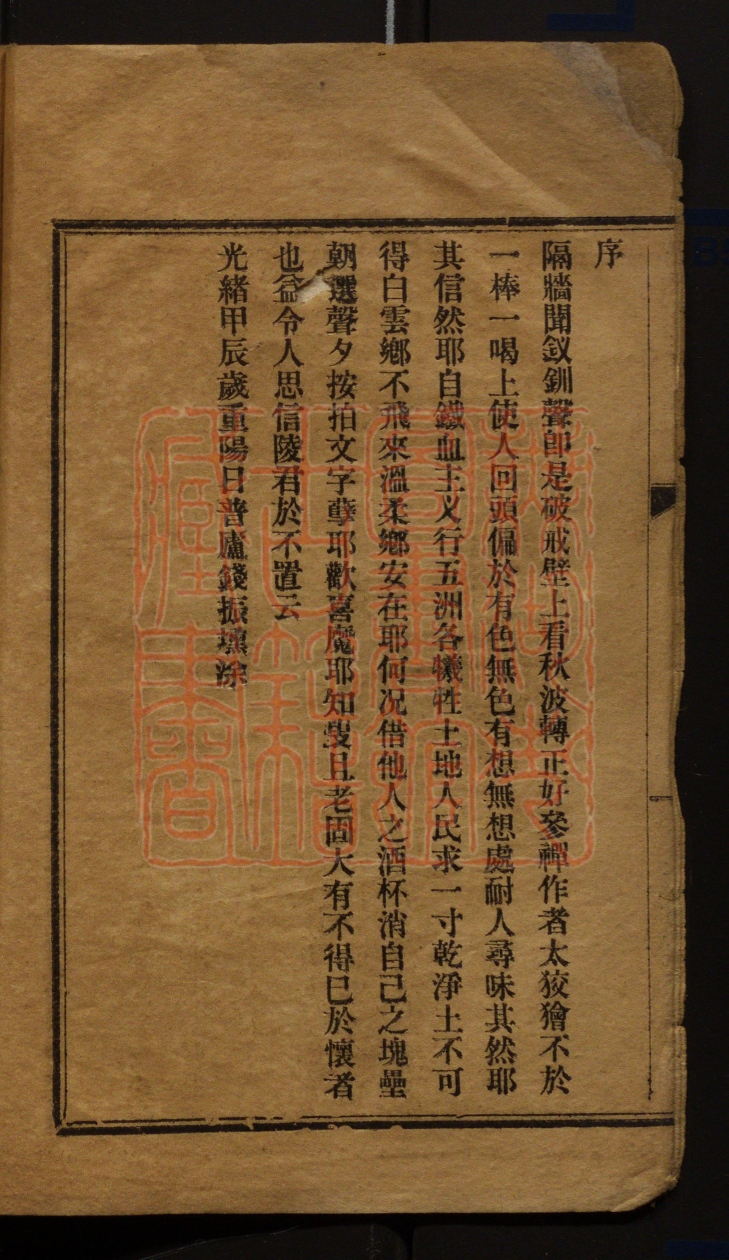 序
隔牆聞釵釧聲卽是破戒壁上看秋波轉正好參禪作者太狡獪不於
一棒一喝上使人回頭偏於有色無色有想無想處耐人尋味其然耶
其信然耶自鐵血主义行五洲各犧牲土地人民求一寸乾淨土不可
得白雲鄉不飛來溫柔鄉安在耶何况借他人之酒杯消自己之塊壘
朝選聲夕按拍文字孽耶歡喜魔耶知叟且老固大有不得已於懷者
也益令人思信陵君於不置云
光緒甲辰歲重陽日普廬錢振塤淙